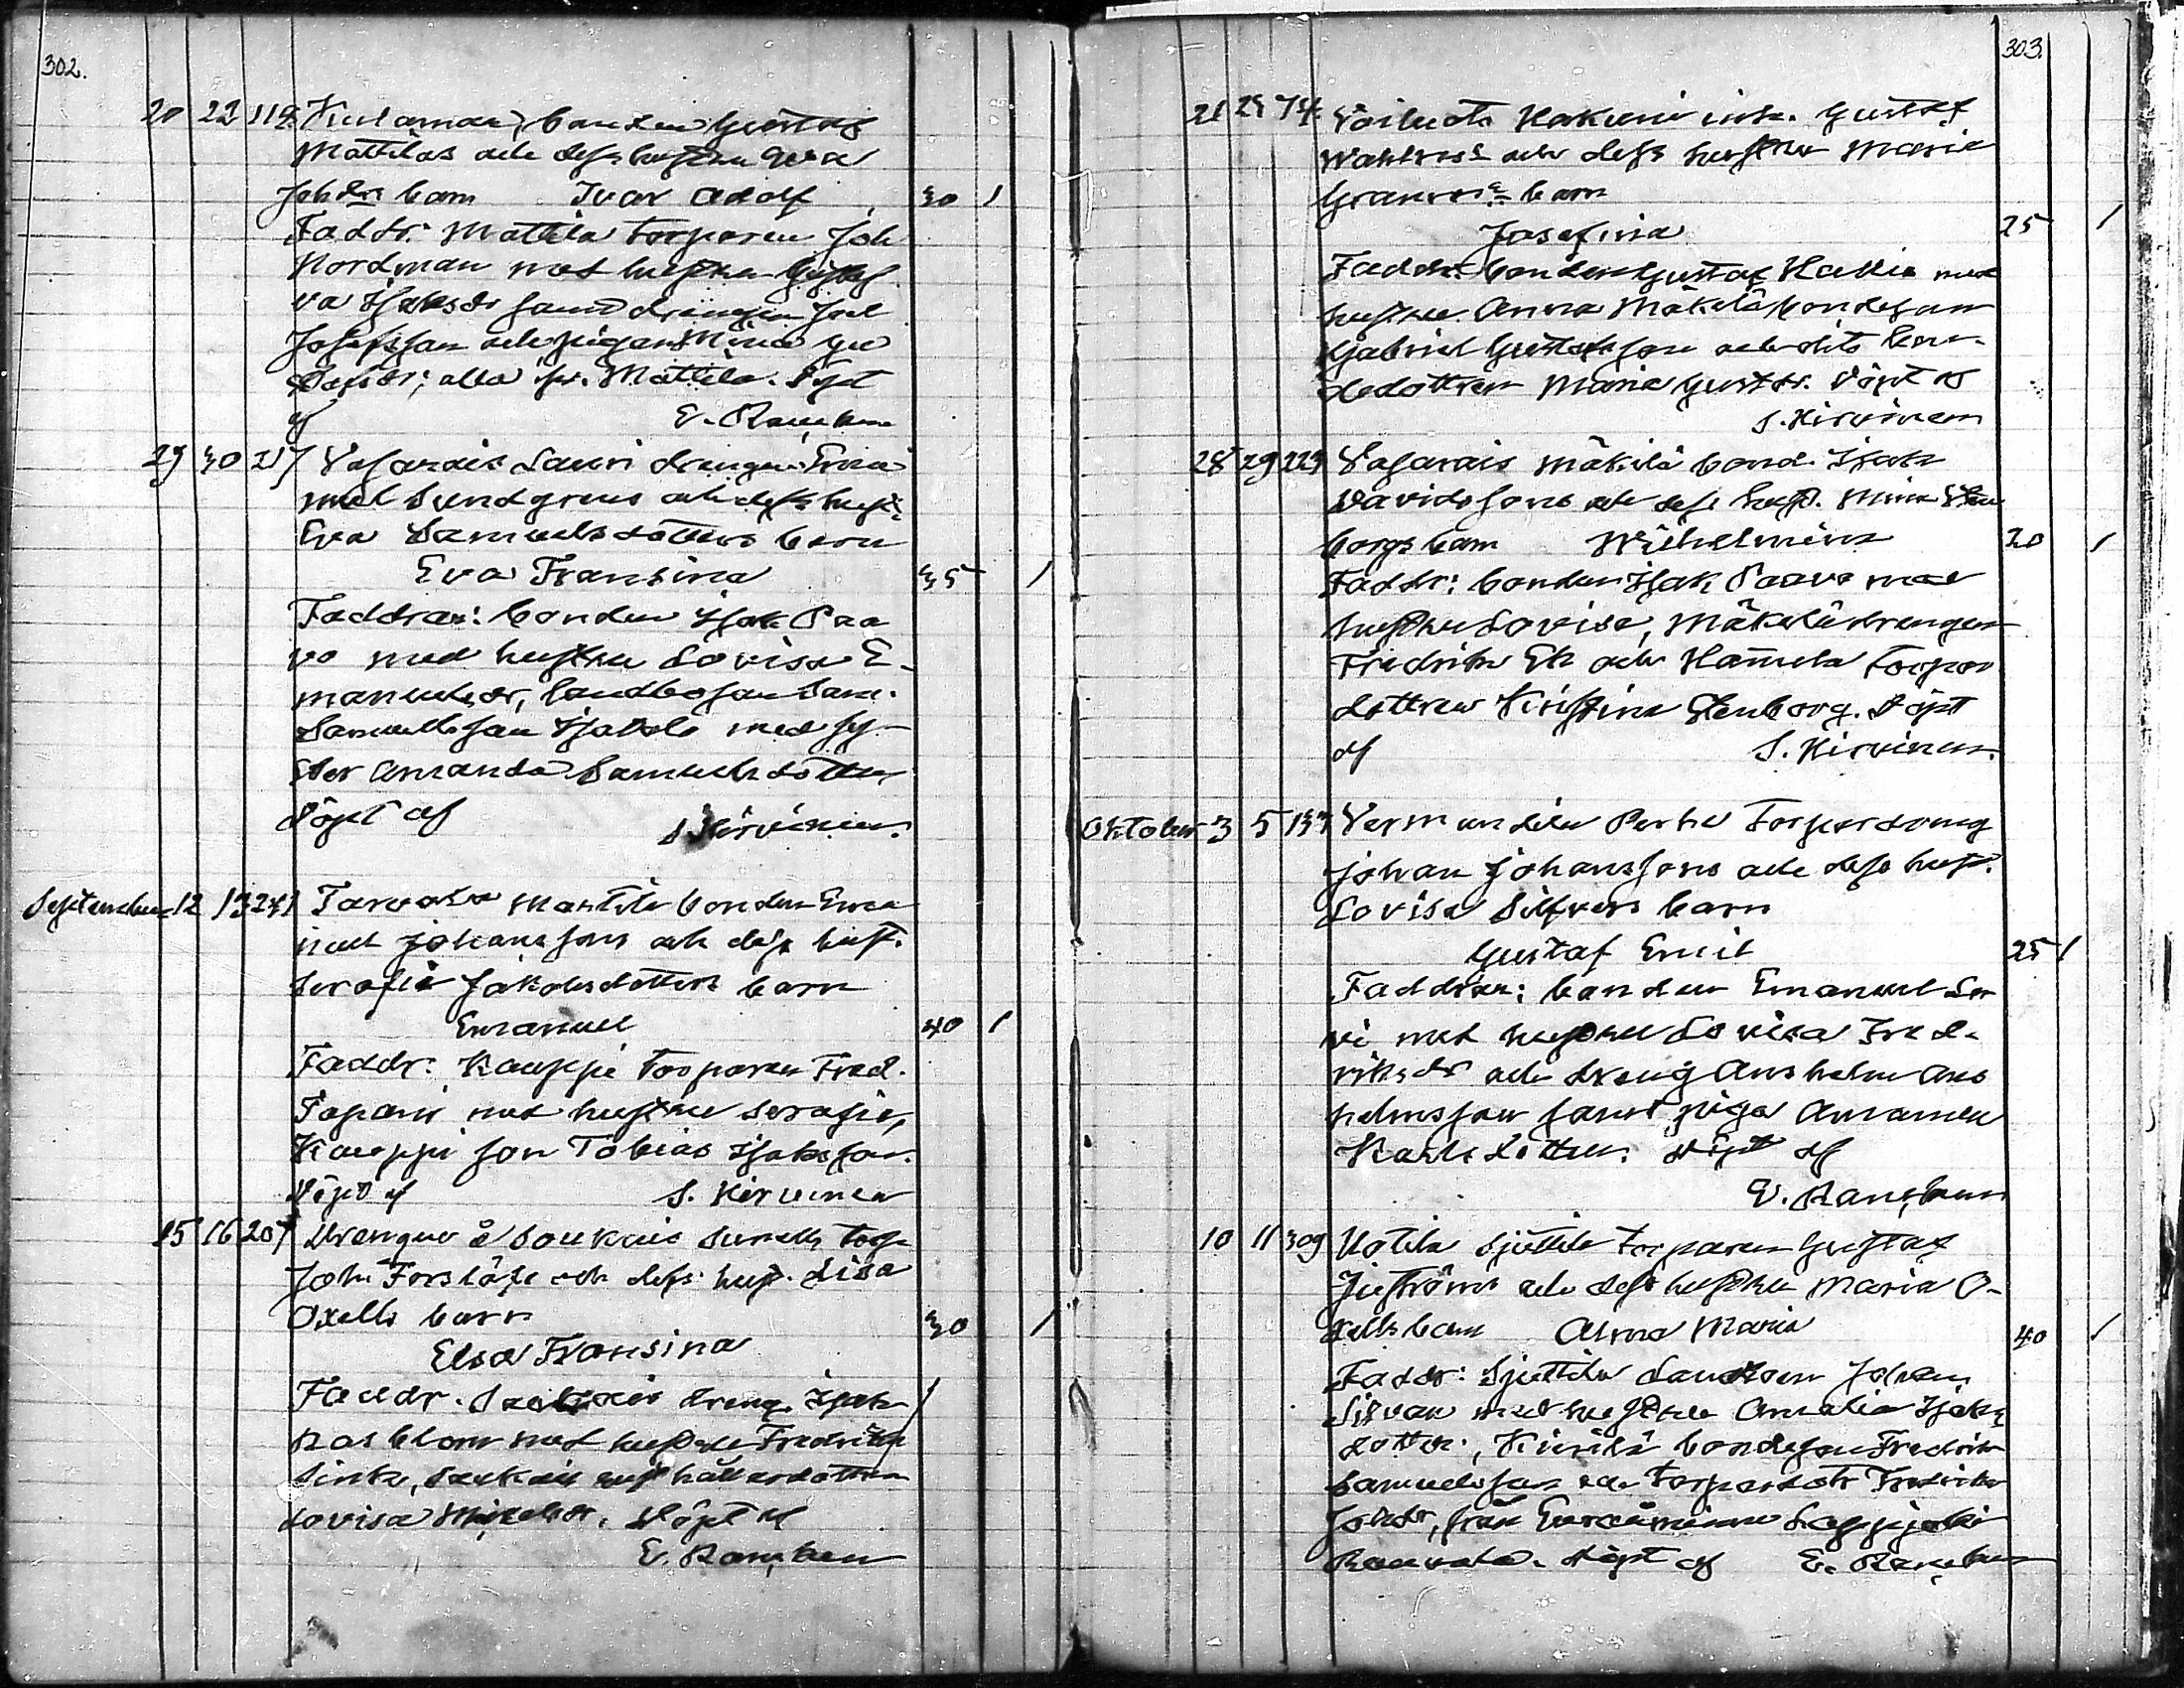 302.
20 22 114 bonden Gustaf
Mattilas och dess hustru Eva
Johdrs barn Ivar Adolf 30 1
Faddr: Mattila torparen Joh
Nordman med hustru Gustaf
va Isaksdr samt drängen Joel
Josefsson och pigan Mina Gu
stafsdr, alla fr. Mattila. Döpt
af E. Rancken
29 30 217 Vafarais Lauri drängen Ema
nuel Sundgrens och dess hust:
Eva Samuelsdotters barn
Eva Fransina 35 1
Faddrar: bonden Isak Paa
vo med hustru Lovisa E-
manuelsdr, landboson Sam.
Samuelsson med sy-
ster Amanda Samuelsdotter
Döpt af S. Hirvinen.
September 12 13 241 Marttila bonden Ema
nuel Johanssons och dess hust.
Serafia Jakobsdotters barn
Emanuel 40 1
Faddr: Kauppi torparen Fred.
Tapani med hustru Serafia,
Kauppi son Tobias Isaksson.
Döpt af S. Hirvinen
15 16 207 Drängens å Soukais torp
Joh: Forslöfs och dess hust. Lisa
Oxells barn 30 1
Elsa Fransina
Faddr. dräng Isak
med hustru Fredrika
dottren
Lovisa Mikelsdr. Döpt af
E. Rancken
303.
21 25 74 Hakuni inh. Gustaf
Wahlroos och dess hustru Maria
Granroos barn
Josefina 25 1
Faddr: bonden Gustaf Kallia med
hustru Anna Mäkelä bondeson
Gabriel Gustafsson och dito bon-
dedottren Maria Gustdr. Döpt af
S. Hirvinen
28 29 223 Vafarais Mäkilä bond. Isak
Davidssons och dess hust. Mina Sten
borgs barn Wilhelmina 20 1
Faddr: bonden Isak Paavo med
hustru Lovisa, Mäkelä drengen
Fredrik Ek och Hannula torpar
dottren Kristina Stenborg. Döpt
af S. Hirvinen.
Oktober 3 5 133 Vermuntila Perho torpardräng
Johan Johanssons och dess hust.
Lovisa Silfvers barn
Gustaf Emil 25 1
Faddrar: bonden Emanuel Ler
vi med hustru Lovisa Fred-
riksdr och dräng Anshelm Ans
helmsson samt piga Amanda
Karlsdotter. Döpt af
E. Rancken
10 11 309 Kotila Sjuttila torparen Gustaf
och dess hustru Maria O-
xells barn Alma Maria 40 1
Faddr: Sjuttila landbon Johan
med hustru Amalia Isaks
dotter, bondeson Fredrik
Samuelsson och torpardotr Fredrika
Johdr, från Euraåminne Lappijoki
Döpt af E. Rancken